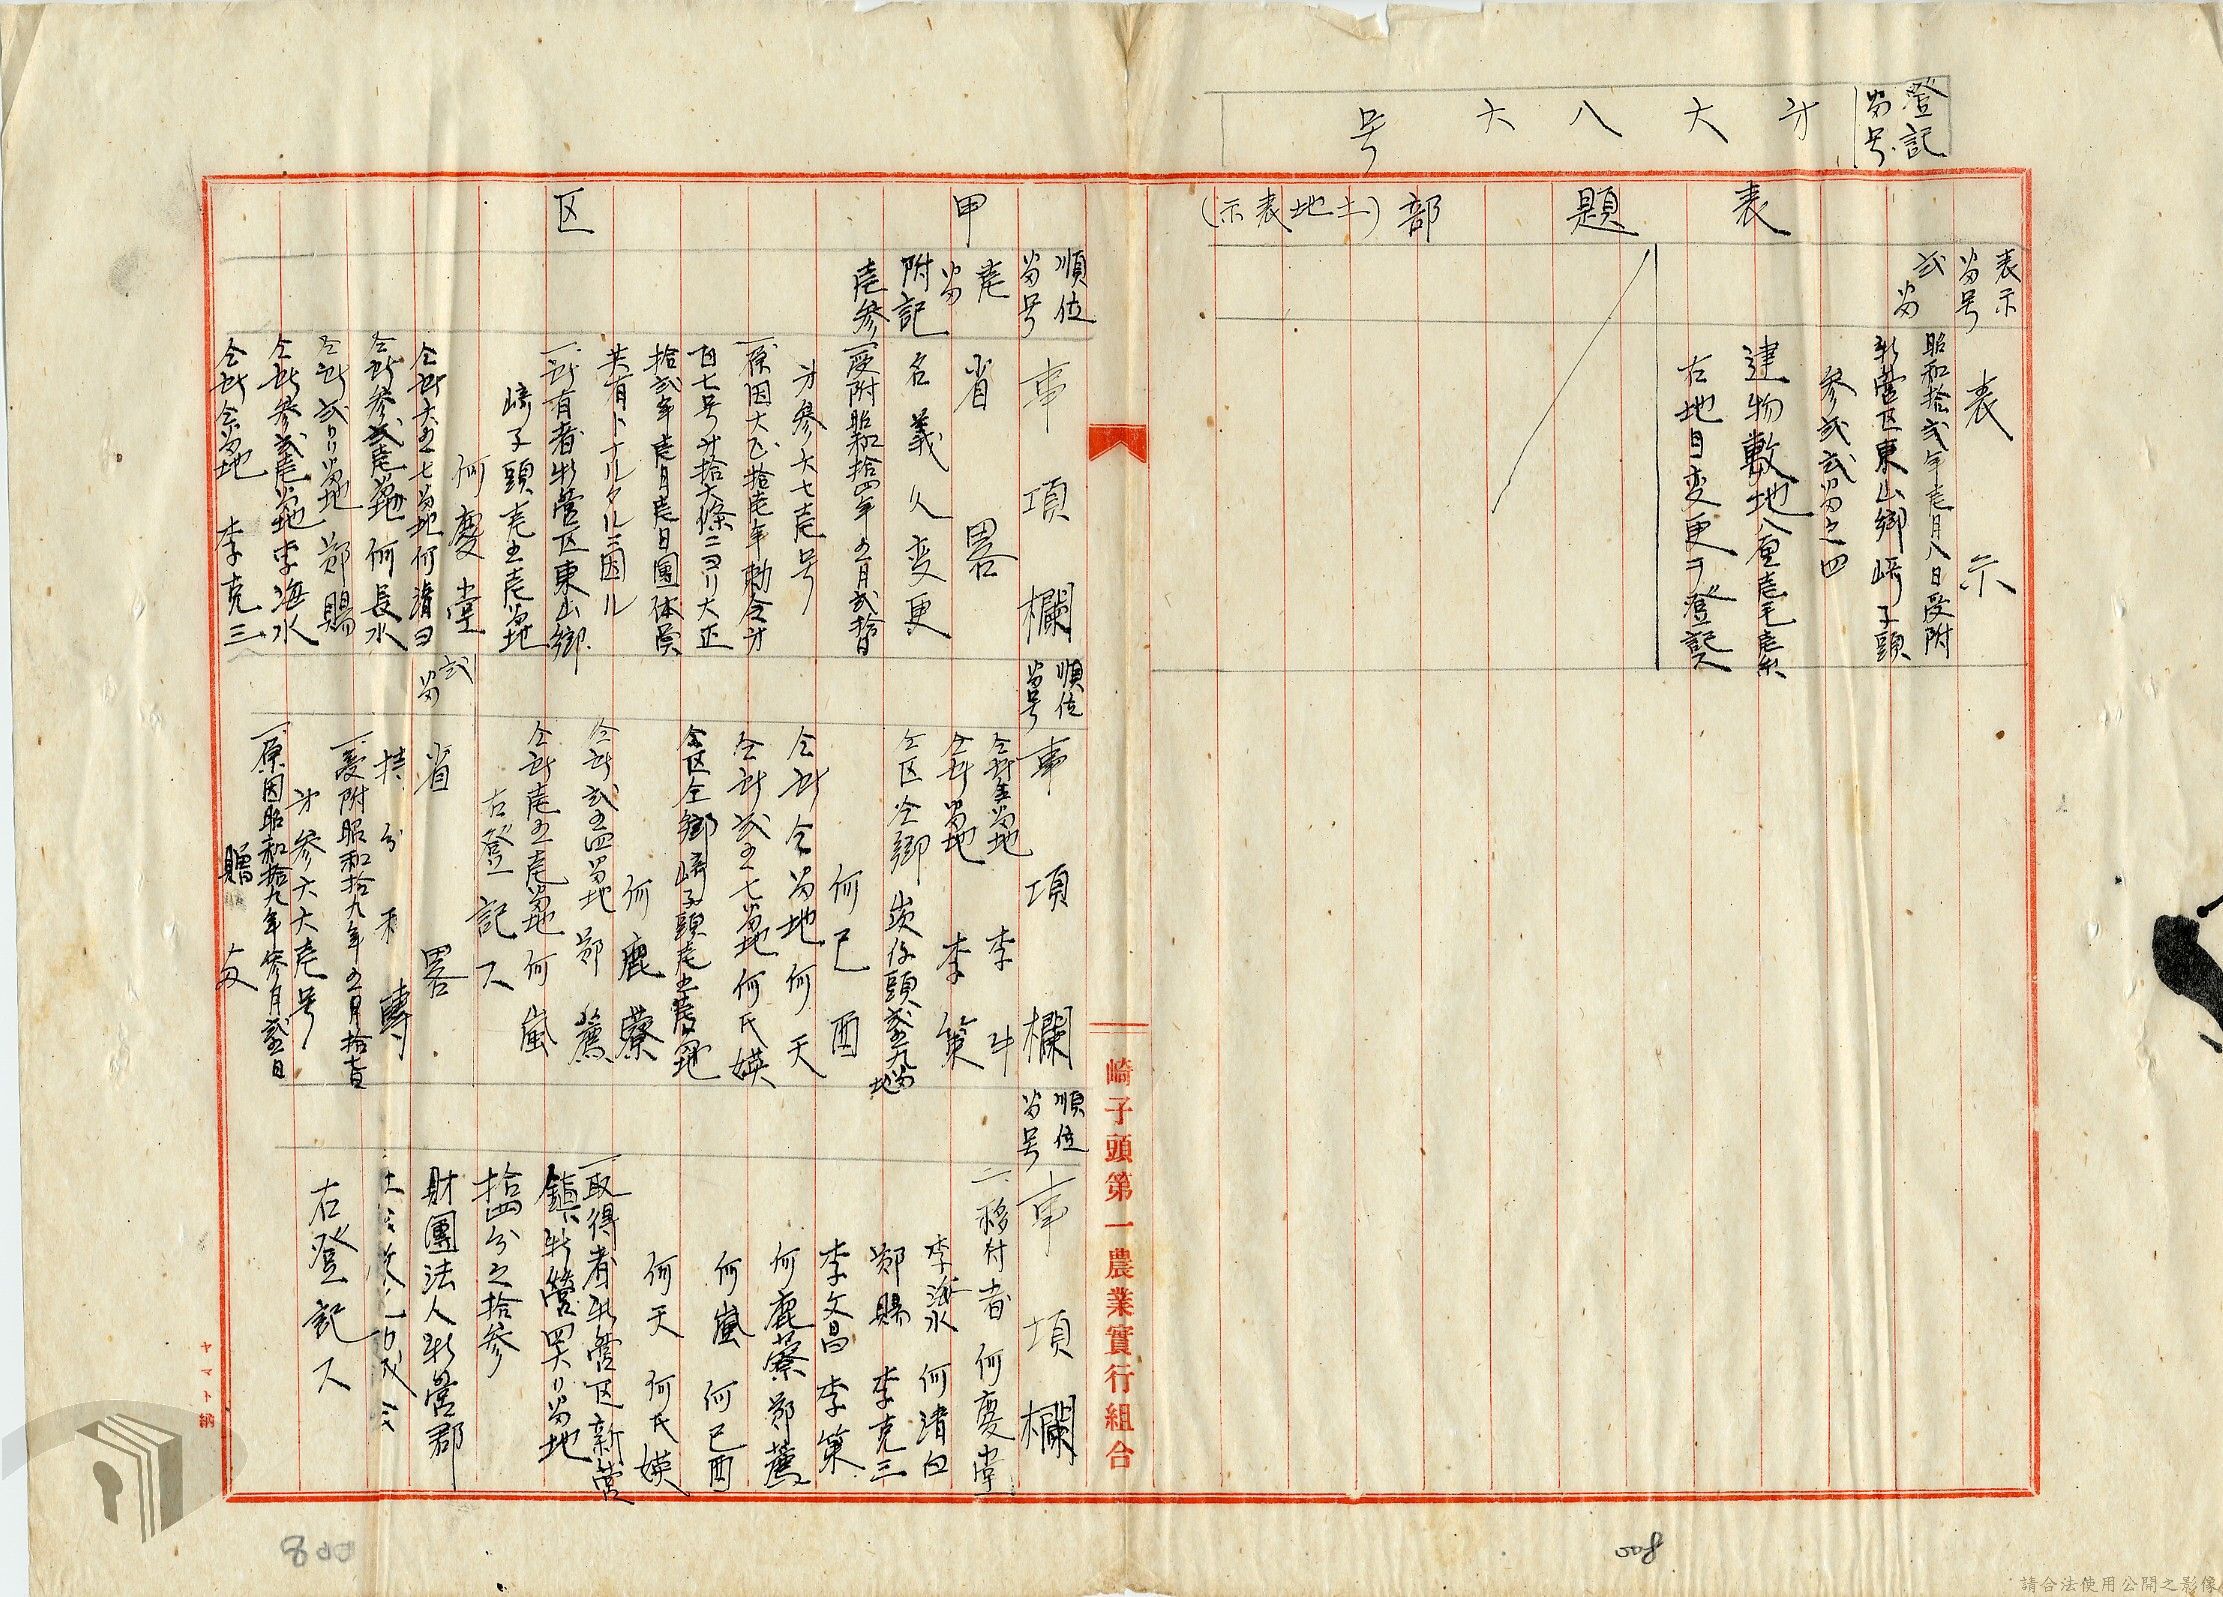 登記
番号
才六八六号
表題部(土地表示)
表示
番号
表示
弍番
昭和拾弍年壱月八日受附
新営区東山郷崎子頭
参弍弍番之四
建物敷地八厘壱毛壱糸
右地目変更ヲ登記ス
崎子頭第一農業實行組合
甲区
順位
番号
事項欄
壱番
省畧
附記
名義人変更
壱参
一、受附昭和拾四年五月弍拾日
才参六七壱号
一、原因大正拾壱年勅令才
四百七号才拾六條ニヨリ大正
拾弍年壱月壱日團体員
共有トナルタルニ因ル
一、所有者新営区東山郷
崎子頭壱五壱番地
何慶堂
仝所六五七番地何清曰
仝所参弍壱番地何長水
仝所弍〇番地鄭賜
仝所参弍壱番地李海水
仝所仝番地李克三
順位
番号
事項欄
仝所仝番地李斗
仝所仝番地李策
仝区仝郷崁仔頭弍五九番地
何己酉
仝所仝番地何天
仝所弍五七番地何氏媖
仝区仝郷崎子頭壱五壱番地
何鹿藔
仝所弍五四番地鄭薦
仝所壱五壱番地何嵐
右登記ス
弍番
省畧
持分移轉
一、受附昭和拾九年五月拾壱日
才参六六壱号
一、原因昭和拾九年参月弍五日
贈与
順位
番号
事項欄
一、移付者何慶堂
李海水何清白
鄭賜李克三
李文昌李策
何鹿藔鄭薦
何嵐何己酉
何天何氏媖
一、取得者新営区新営
鎮新營四六〇番地
拾四分之拾参
財團法人新営郡
右登記ス
ヤマト納
008
008
請合法使用公開之影像